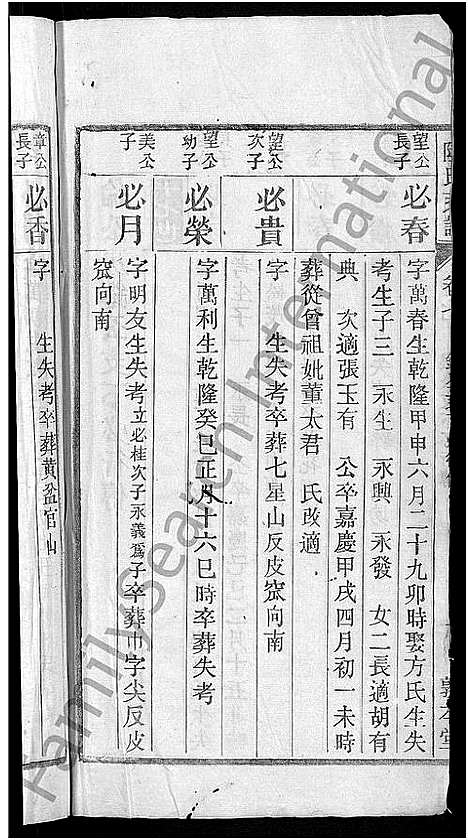 望公長子
必春
字萬春生乾隆甲申六月二十九卯時娶方氏生失
考生子三 永生 永興 永發 女二長適胡有
典 次適張玉有 公卒嘉慶甲戌四月初一未時
葬從曾祖妣董太君 氏改適
望公次子
必貴
字 生失考卒葬七星山反皮窾向南
望公幼子
必榮
字萬利生乾隆癸巳正月十六巳時卒葬失考
美公子
必月
字明友生失考立必桂次子永義爲子卒葬巾字尖反皮
窾向南
章公長子
必香
字 生失考卒葬黄盆官山
FamilySearch International